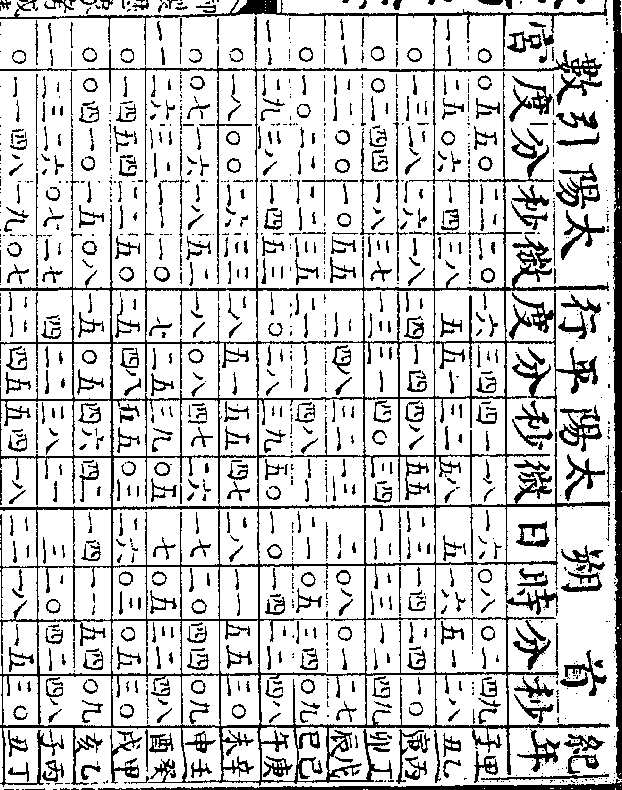 數引陽太 行平陽太 朔首 紀
宮 度 分 秒 微 度 分 秒 微 日 時 分 秒 年
〇 〇五 五〇 二二 二〇 一六 三四 四一 一八 一六 〇八 〇二 四九 子甲
一一 二五 〇六 一四 三八 五 五一 三二 五八 五 一六 五一 二八 丑乙
〇 一三 二八 二六 一八 二四 一四 四八 五五 二三 一四 二四 一〇 寅丙
〇 〇二 四四 一八 三七 一三 三一 四〇 三四 一二 二三 一二 四九 卯丁
一一 二二 〇〇 一〇 五五 二 四八 三二 一三 二 〇八 〇一 二七 辰戊
〇 一〇 二二 二二 三五 二一 一一 四八 一一 二一 〇五 三四 〇九 巳己
一一 二九 三八 一四 五三 一〇 二八 三九 五〇 一〇 一四 二二 四八 午庚
〇 一八 〇〇 二六 三三 二八 五一 五五 四七 二八 一一 五五 三〇 未辛
〇 〇七 一六 一八 五二 一八 〇八 四七 二六 一七 二〇 四四 〇九 申壬
一一 二六 三二 一一 一〇 七 二五 三九 〇五 七 〇五 三二 四八 酉癸
〇 一四 五四 二二 五〇 二五 四八 五五 〇三 二六 〇三 〇五 三〇 戌甲
〇 〇四 一〇 一五 〇八 一五 〇五 四六 四二 一四 一一 五四 〇九 亥乙
一一 二三 二六 〇七 二七 四 二二 三八 二一 三 二〇 四二 四八 子丙
〇 一一 四八 一九 〇七 二二 四五 五四 一八 二二 一八 一五 三〇 丑丁